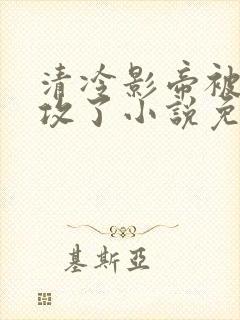 清冷影帝被
攻了小說免
基斯亞